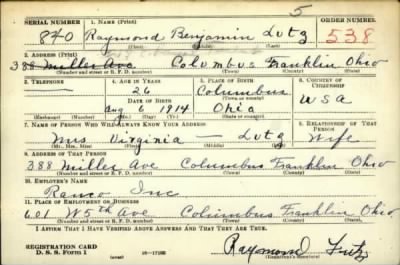 5
SERIAL NUMBER 1. NAME (Print) ORDER NUMBER
840 Raymond Benjamin Lutz 538
(First) (Middle) (Last)
2. ADDRESS (Print)
388 Miller Ave Columbus Franklin Ohio
(Number and street or R. F. D. number) (Town) (County) (State)
3. TELEPHONE 4. AGE IN YEARS 5. PLACE OF BIRTH 6. COUNTRY OF CITIZENSHIP
— 26 Columbus
DATE OF BIRTH (Town or county)
Aug 6 1914 Ohio USA
(Mo.) (Day) (Yr.) (State or country)
7. NAME OF PERSON WHO WILL ALWAYS KNOW YOUR ADDRESS 8. RELATIONSHIP OF THAT PERSON
Mrs Virginia — Lutz Wife
(Mr., Mrs., Miss) (First) (Middle) (Last)
9. ADDRESS OF THAT PERSON
388 Miller Ave Columbus Franklin Ohio
(Number and street or R. F. D. number) (Town) (County) (State)
10. EMPLOYER'S NAME
Ranco Inc
11. PLACE OF EMPLOYMENT OR BUSINESS
601 W 5th Ave Columbus Franklin Ohio
(Number and street or R. F. D. number) (Town) (County) (State)
I AFFIRM THAT I HAVE VERIFIED ABOVE ANSWERS AND THAT THEY ARE TRUE.
REGISTRATION CARD
D. S. S. Form 1 Raymond Lutz
(Registrant's signature)